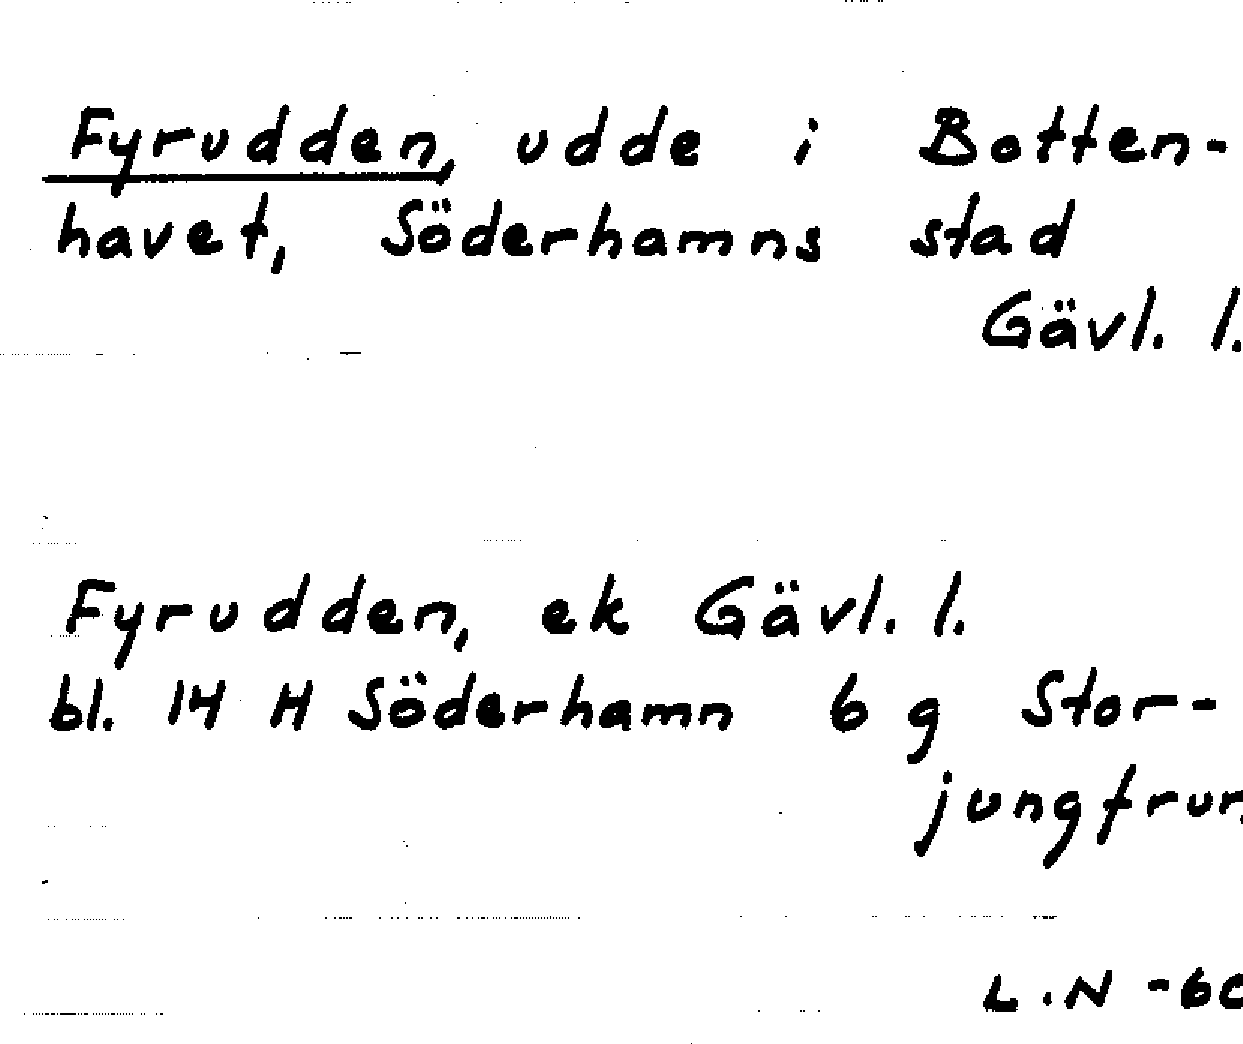 Fyrudden, udde i Botten-
havet, Söderhamns stad
Gävl. l.
Fyrudden, ek Gävl. l.
bl. 14 H Söderhamn 6 g Stor-
jungfrun
L.N -60